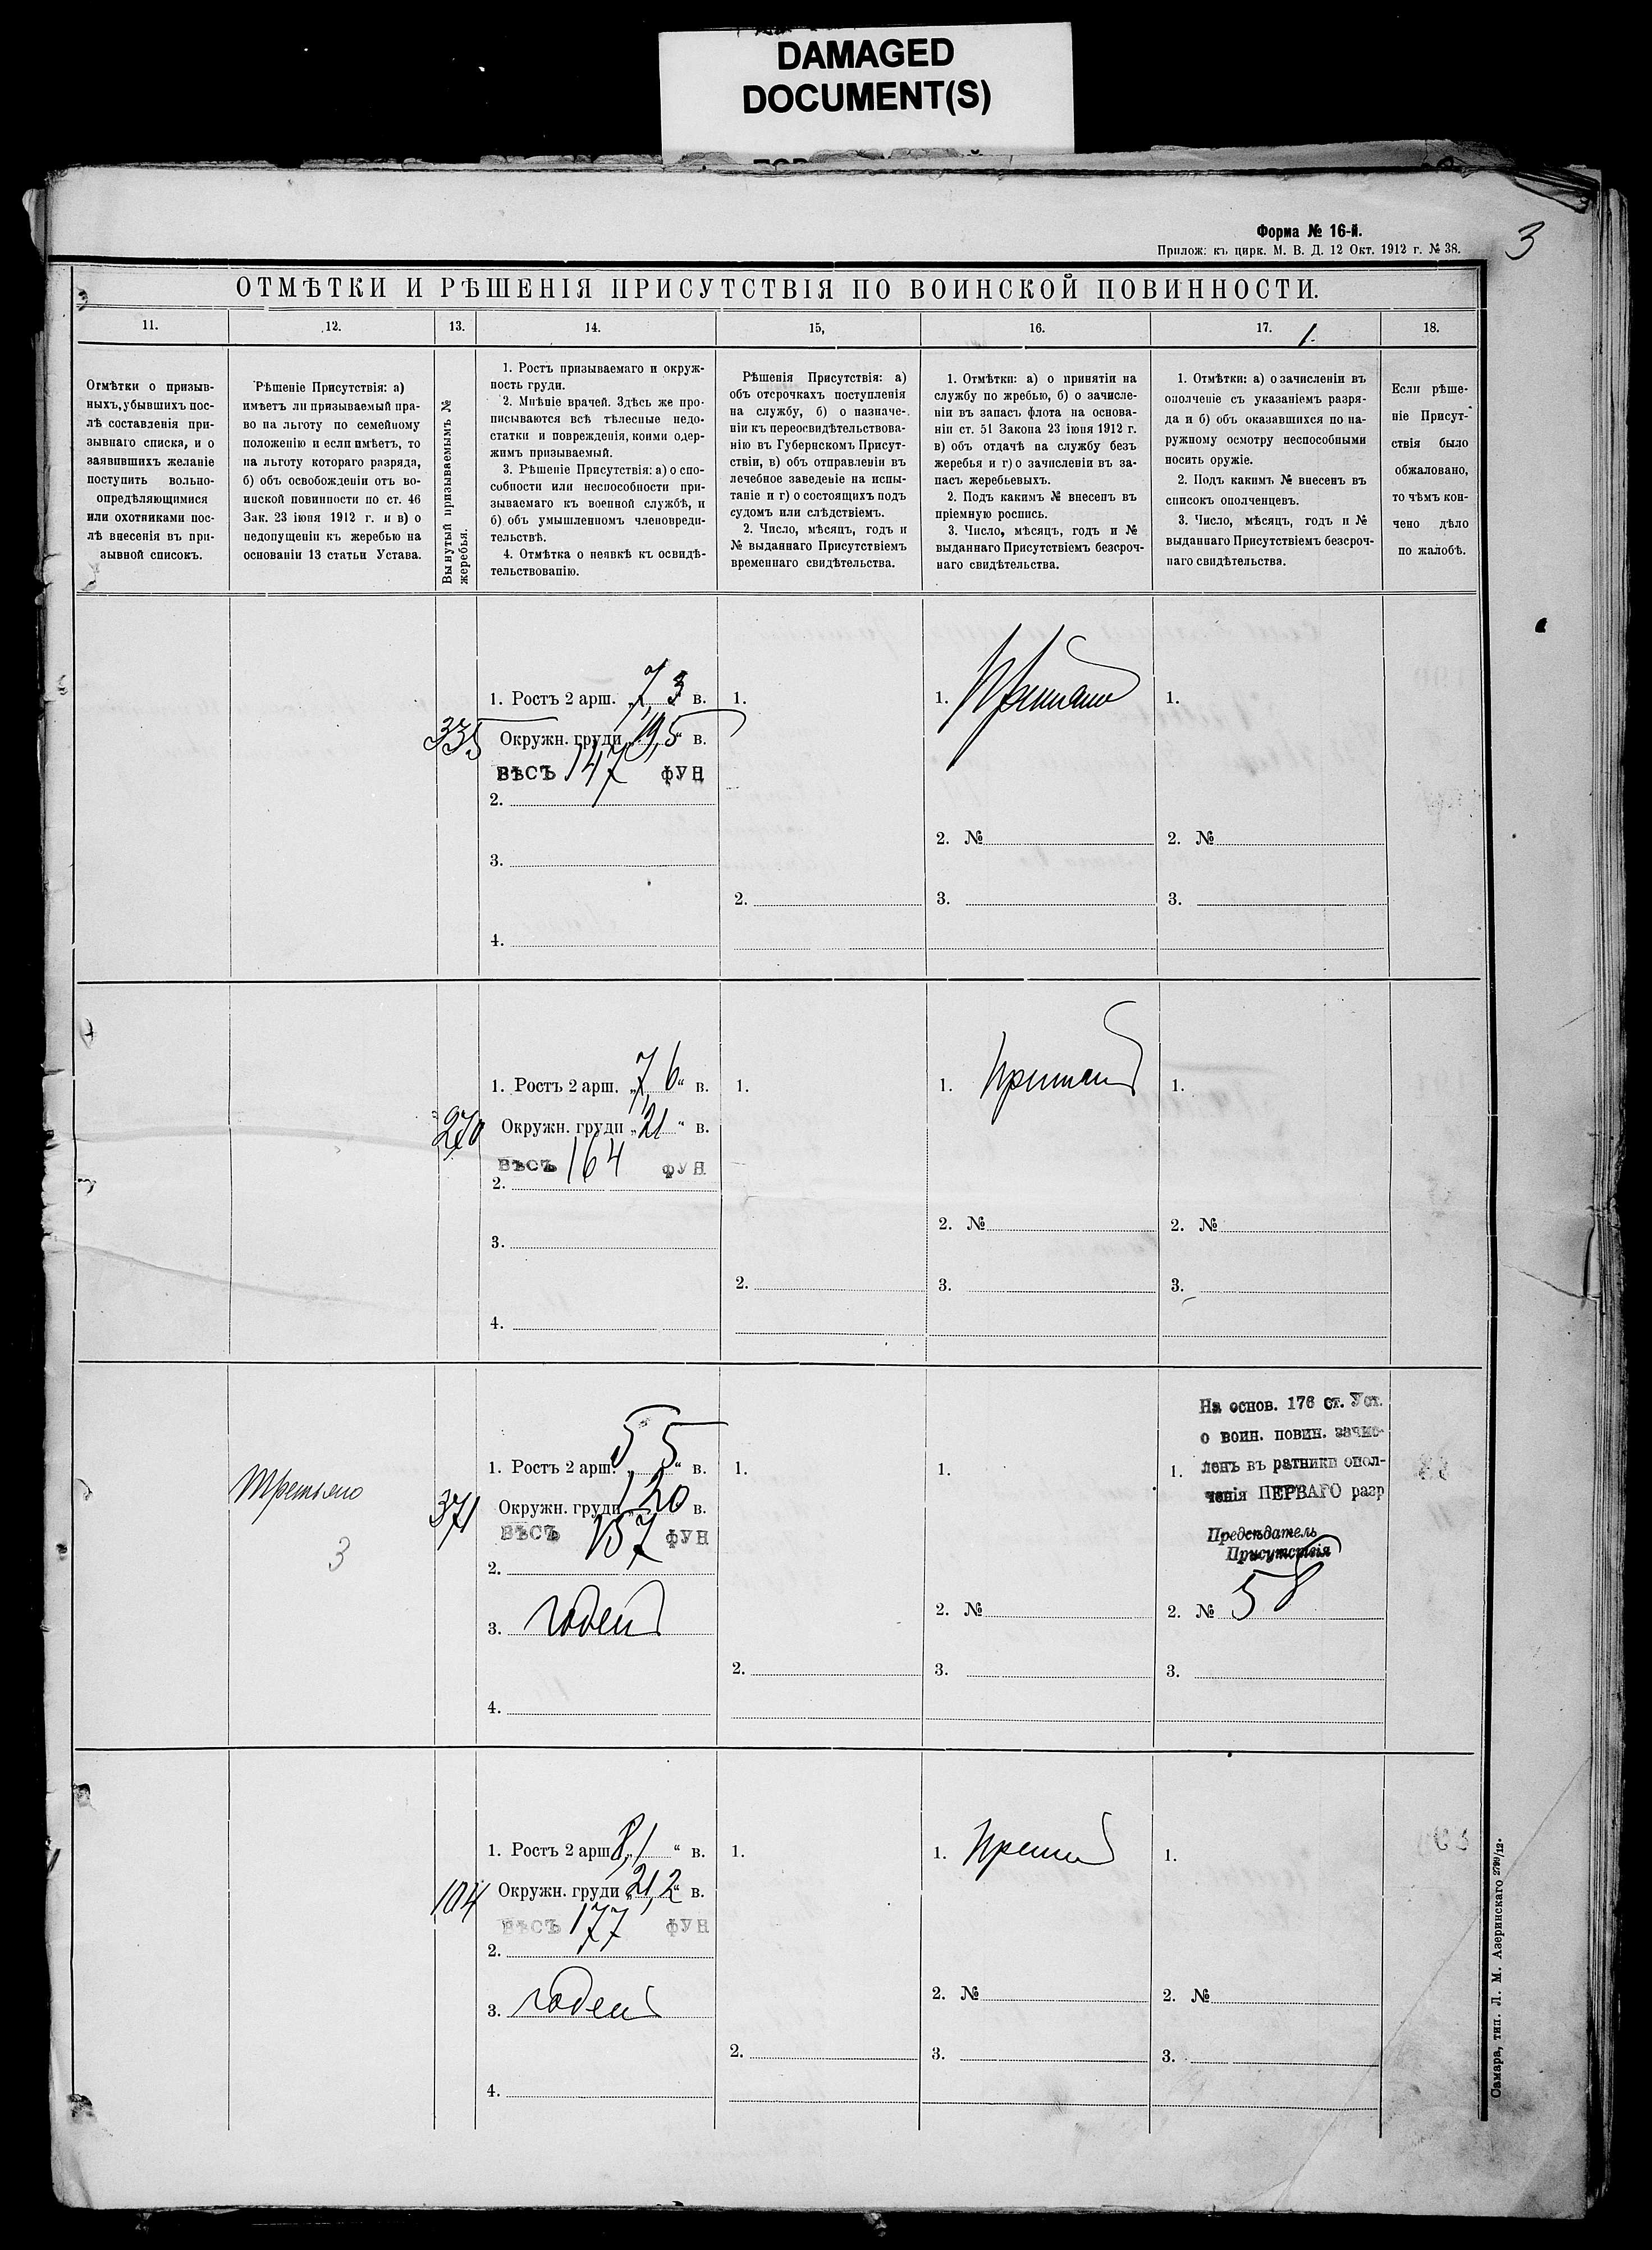 DAMAGED
DOCUMENT(S)
Форма № 16-й.
Прилож: къ цирк. М. В. Д. 12 Окт. 1912 г. № 38.
3
ОТМѢТКИ И РѢШЕНІЯ ПРИСУТСТВІЯ ПО ВОИНСКОЙ ПОВИННОСТИ.
11.
12.
13.
14.
15,
16.
17.
1.
18.
Отмѣтки о призыв-
ныхъ, убывшихъ пос-
лѣ составленія при-
зывнаго списка, и о
заявившихъ желаніе
поступить вольно-
опредѣляющимися
или охотниками пос-
лѣ внесенія въ при-
зывной списокъ.
Рѣшеніе Присутствія: а)
имѣетъ ли призываемый пра-
во на льготу по семейному
положенію и если имѣетъ, то
на льготу котораго разряда,
б) объ освобожденіи отъ во-
инской повинности по ст. 46
Зак. 23 іюня 1912 г. и в) о
недопущеніи къ жеребью на
основаніи 13 статьи Устава.
Вынутый призываемымъ №
жеребья.
1. Ростъ призываемаго и окруж-
ность груди.
2. Мнѣніе врачей. Здѣсь же про-
писываются всѣ тѣлесные недо-
статки и поврежденія, коими одер-
жимъ призываемый.
3. Рѣшеніе Присутствія: а) о спо-
собности или неспособности при-
зываемаго къ военной службѣ, и
б) объ умышленномъ членовреди-
тельствѣ.
4. Отмѣтка о неявкѣ къ освидѣ-
тельствованію.
Рѣшенія Присутствія: а)
объ отсрочкахъ поступленія
на службу, б) о назначе-
ніи къ переосвидѣтельствова-
нію въ Губернскомъ Присут-
ствіи, в) объ отправленіи въ
лечебное заведеніе на испы-
таніе и г) о состоящихъ подъ
судомъ или слѣдствіемъ.
2. Число, мѣсяцъ, годъ и
№ выданнаго Присутствіемъ
временнаго свидѣтельства.
1. Отмѣтки: а) о принятіи на
службу по жребью, б) о зачисле-
ніи въ запасъ флота на основа-
ніи ст. 51 Закона 23 іюня 1912 г.
в) объ отдачѣ на службу безъ
жеребья и г) о зачисленіи въ за-
пасъ жеребьевыхъ.
2. Подъ какимъ № внесенъ въ
пріемную роспись.
3. Число, мѣсяцъ, годъ и №
выданнаго Присутствіемъ безсроч-
наго свидѣтельства.
1. Отмѣтки: а) о зачисленіи въ
ополченіе съ указаніемъ разря-
да и б) объ оказавшихся по на-
ружному осмотру неспособными
носить оружіе.
2. Подъ какимъ № внесенъ въ
списокъ ополченцевъ.
3. Число, мѣсяцъ, годъ и №
выданнаго Присутствіемъ безсроч-
наго свидѣтельства.
Если рѣше-
ніе Присут-
ствія было
обжаловано,
то чѣмъ кон-
чено дѣло
по жалобѣ.
335
1. Ростъ 2 арш. „7,3 в.
Окружн. груди „19,5“ в.
ВѢСЪ 147 ФУН
2.
3.
4.
1.
2.
1. Принятъ
2. №
3.
1.
2. №
3.
270
1. Ростъ 2 арш. „7,6“ в.
Окружн. груди „21“ в.
ВѢСЪ 164 ФУН
2.
3.
4.
1.
2.
1. Принятъ
2. №
3.
1.
2. №
3.
3
371
1. Ростъ 2 арш. „5 5“ в.
Окружн. груди „20 в.
ВѢСЪ 157 ФУН
2.
3. годенъ
4.
1.
2.
1.
2. №
3.
На основ. 176 ст. Уст.
о воин. повин. зачис-
1. ленъ въ ратники опол-
ченія ПЕРВАГО разр
Предсѣдатель
Присутствія
2. № 58
3.
104
1. Ростъ 2 арш 8,1 “ в.
Окружн. груди „21,2“ в.
ВѢСЪ 177 ФУН
2.
3. годенъ
4.
1.
2.
1. Принятъ
2. №
3.
1.
2. №
3.
Самара, тип. Л. М. Азеринскаго 2799/12.